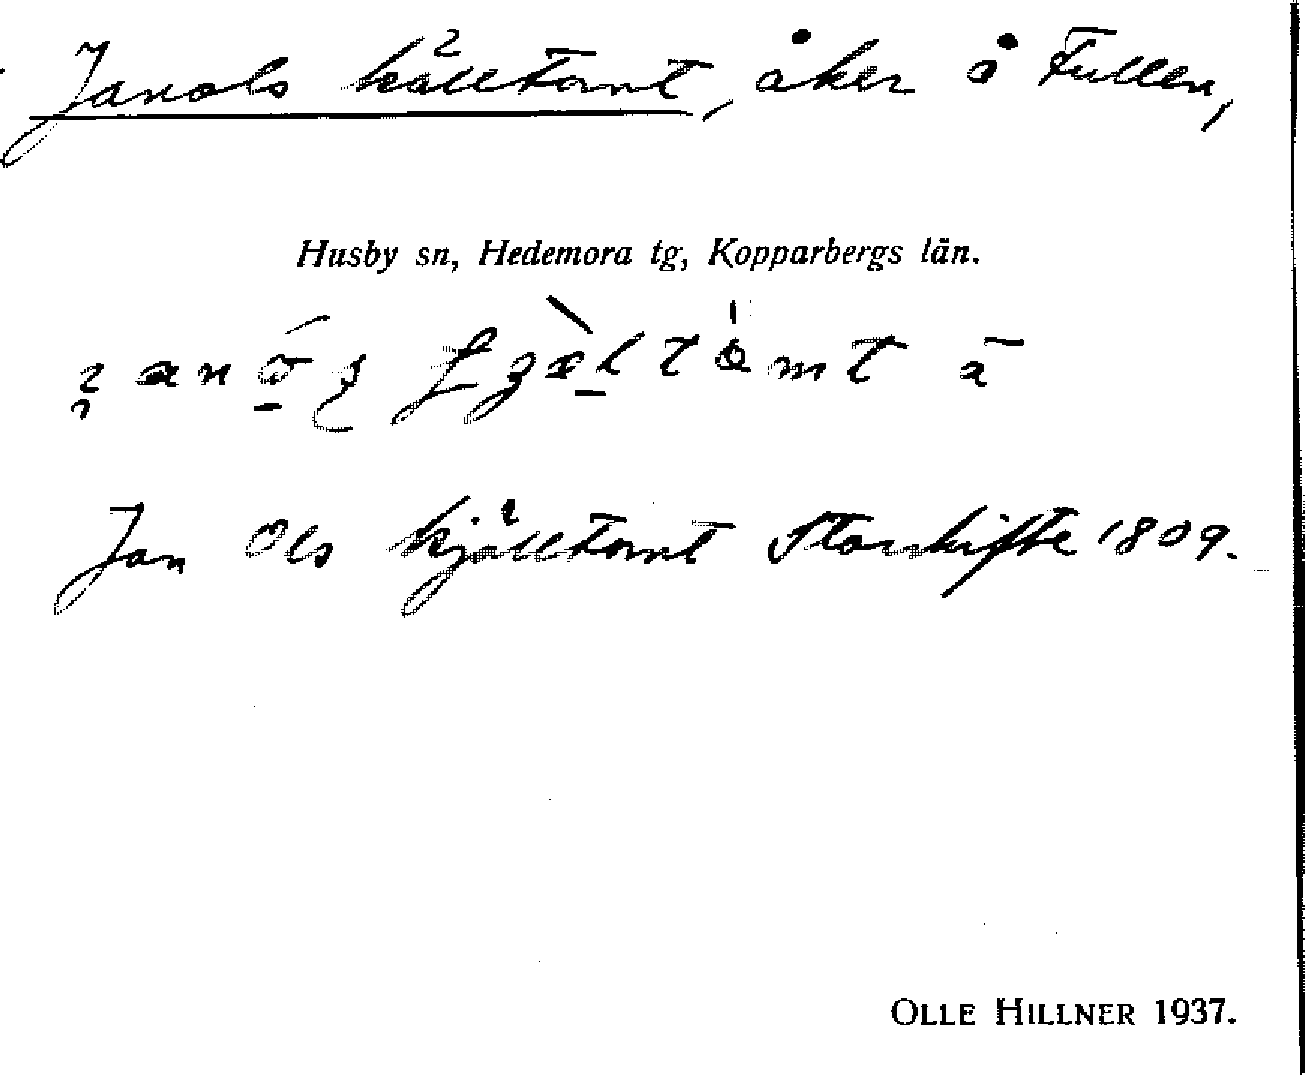 Janols källtomt, åker å Fullen,
Husby sn, Hedemora tg, Kopparbergs län.
Jan Ols kjälltomt Storskifte 1809.
OLLE HILLNER 1937.